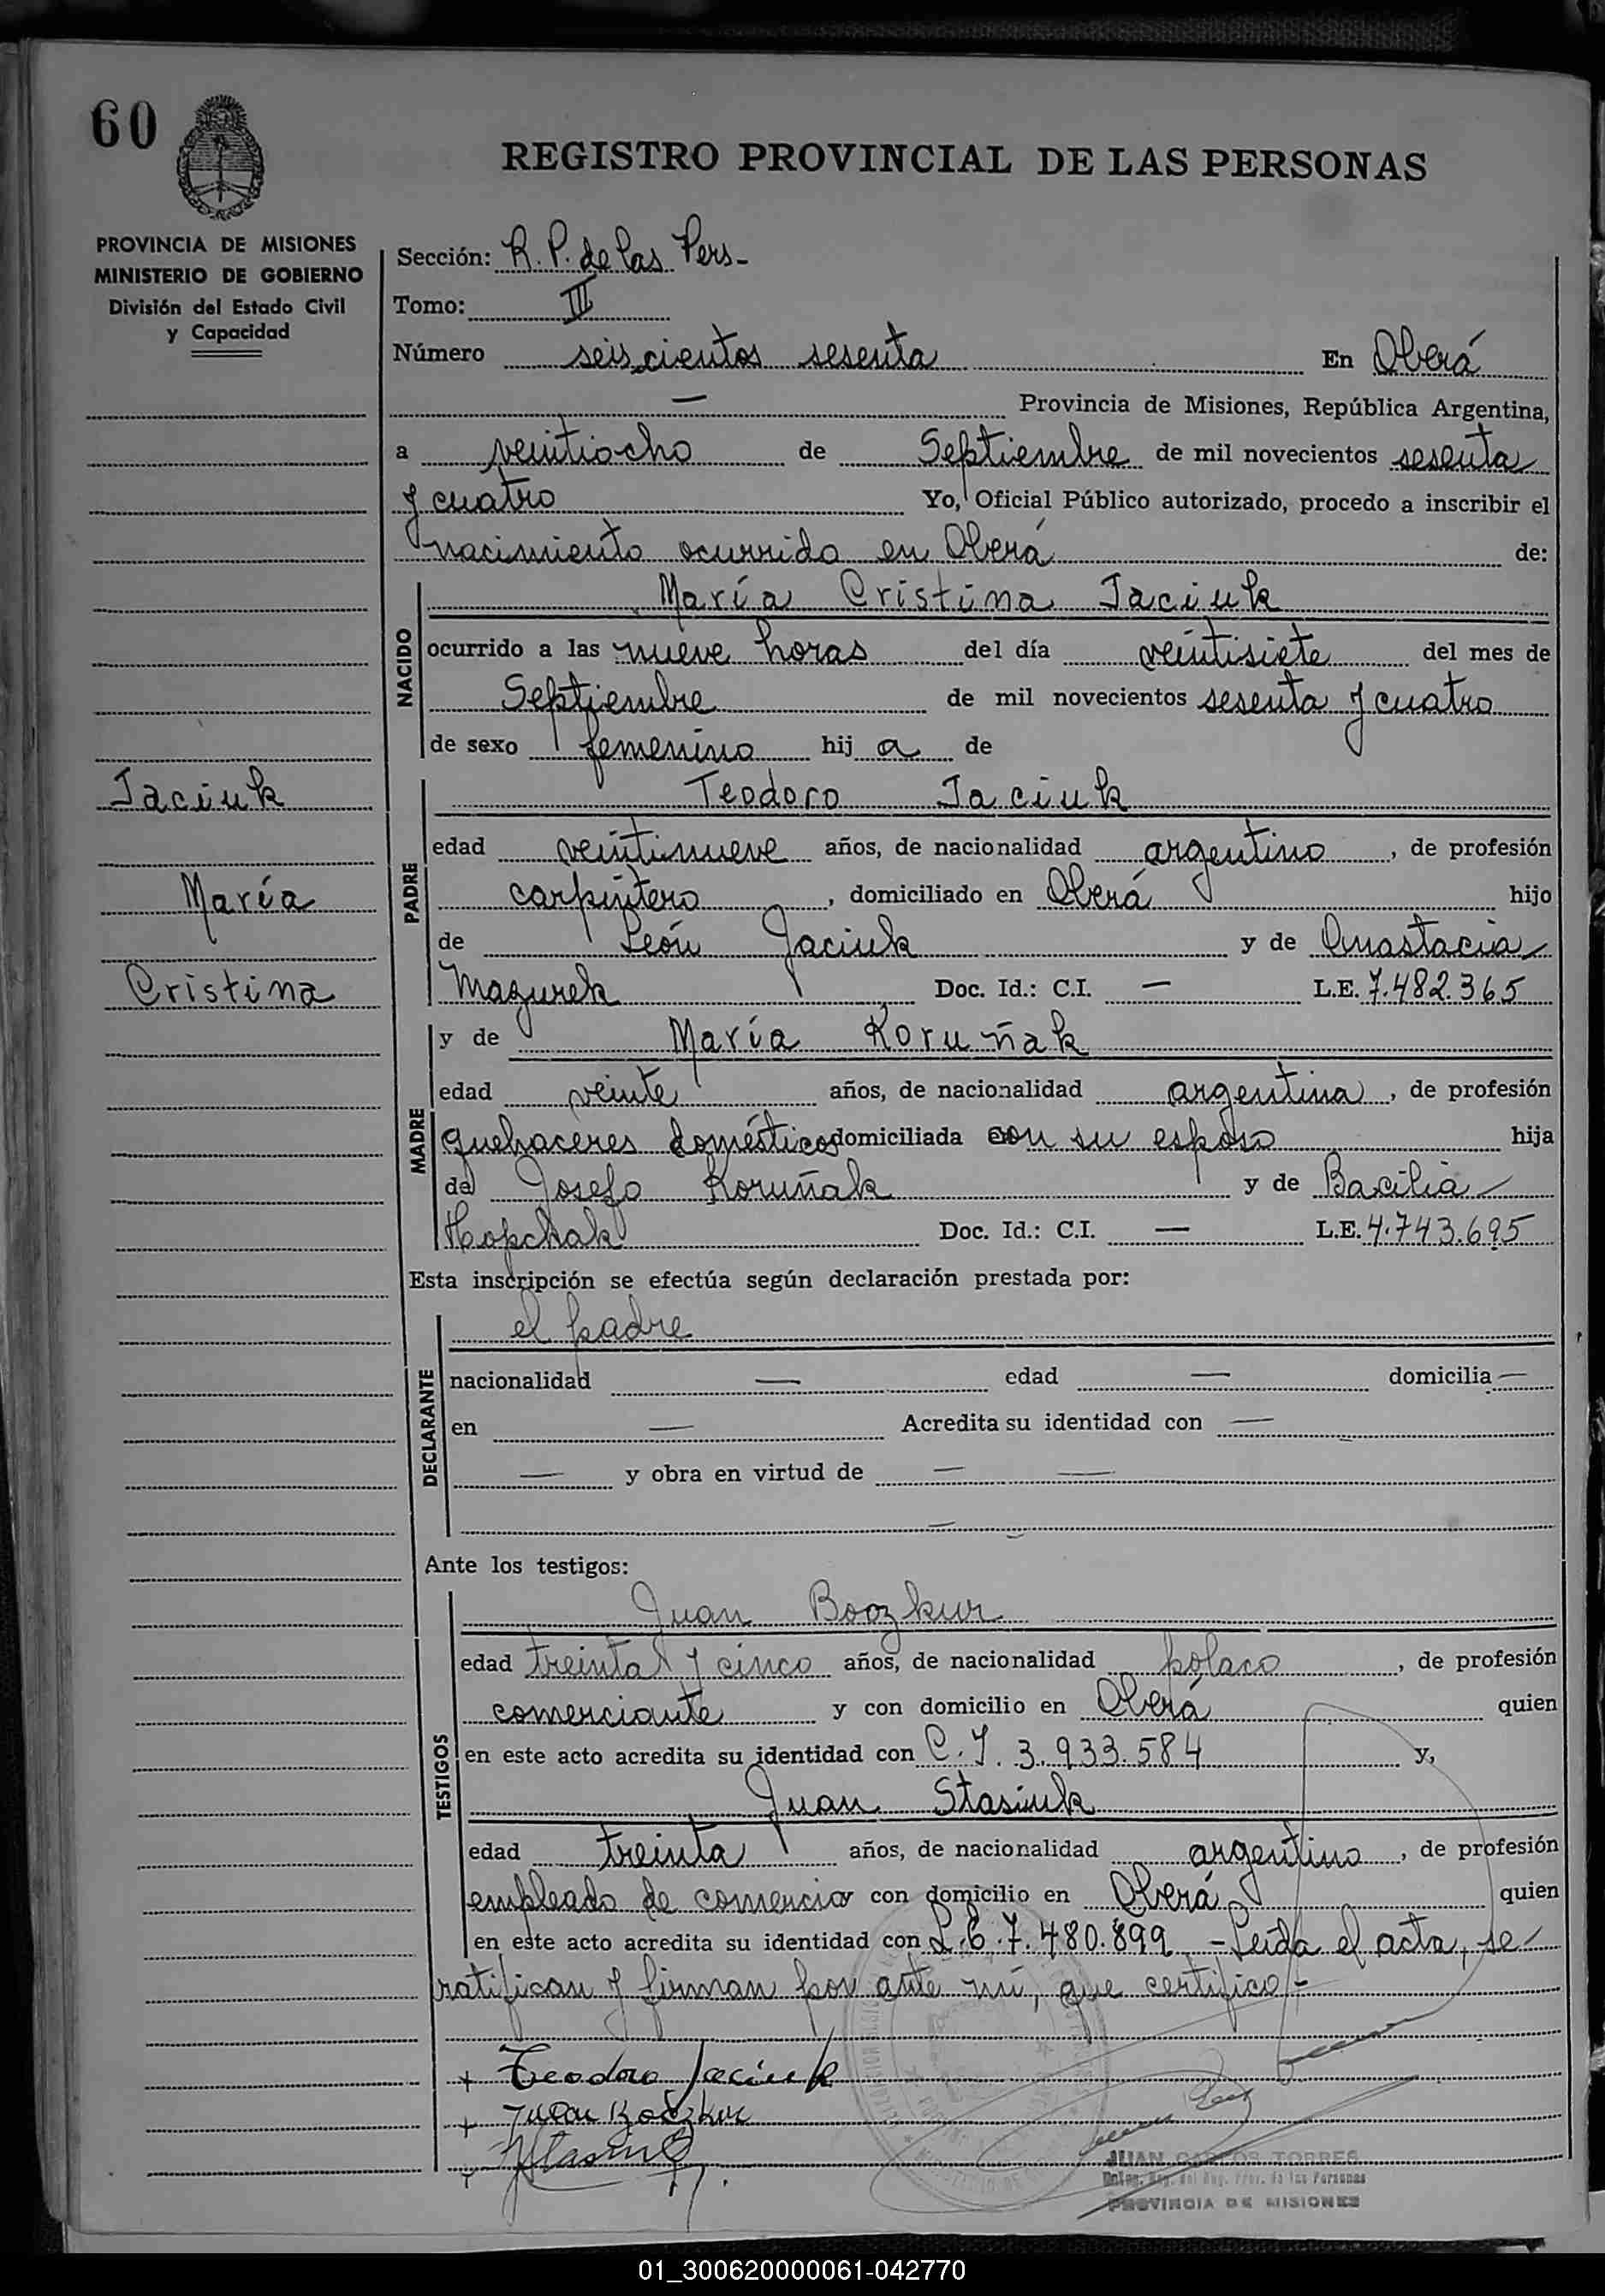 60
REGISTRO PROVINCIAL DE LAS PERSONAS
PROVINCIA DE MISIONES
MINISTERIO DE GOBIERNO
División del Estado Civil
y Capacidad
Sección: R. P. de las Pers-
Tomo: III
Número seiscientos sesenta En Oberá
— Provincia de Misiones, República Argentina,
a veintiocho de Septiembre de mil novecientos sesenta
y cuatro Yo, Oficial Público autorizado, procedo a inscribir el
nacimiento ocurrido en Oberá de:
NACIDO
María Cristina Jaciuk
ocurrido a las nueve horas del día veintisiete del mes de
Septiembre de mil novecientos sesenta y cuatro
de sexo femenino hij a de
Jaciuk
María
Cristina
PADRE
Teodoro Jaciuk
edad veintinueve años, de nacionalidad argentino, de profesión
carpintero, domiciliado en Oberá hijo
de León Jaciuk y de Anastacia
Mazurek Doc. Id.: C.I. — L.E. 7.482.365
MADRE
y de María Koruñak
edad veinte años, de nacionalidad argentina, de profesión
quehaceres domésticos domiciliada con su esposo hija
de Josefo Koruñak y de Bacilia
Hopchak Doc. Id.: C.I. — L.E. 4.743.695
Esta inscripción se efectúa según declaración prestada por:
DECLARANTE
el padre
nacionalidad — edad — domicilia —
en — Acredita su identidad con —
— y obra en virtud de — —
—
Ante los testigos:
TESTIGOS
Juan Boozkur
edad treinta y cinco años, de nacionalidad polaco, de profesión
comerciante y con domicilio en Oberá quien
en este acto acredita su identidad con C. I. 3.933.584 y,
Juan Stasiuk
edad treinta años, de nacionalidad argentino, de profesión
empleado de comercio y con domicilio en Oberá quien
en este acto acredita su identidad con L.E. 7.480.899 - Leída el acta, se
ratifican y firman por ante mí, que certifico.-
+ Teodoro Jaciuk
+ Juan Boczkur
+ JStasiuk
JUAN CARLOS TORRES
PROVINCIA DE MISIONES
01_300620000061-042770